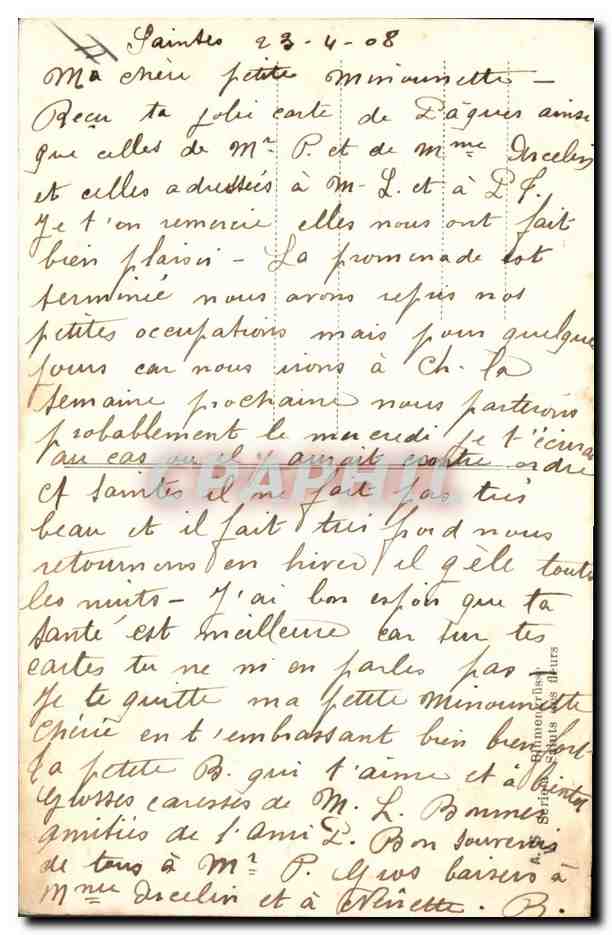 Saintes 23-4-08
Ma chère petite Minounette —
Reçu ta jolie carte de Pâques ainsi
que celles de Mr P. et de Mme Arcelin
et celles adressées à M-L. et à P.F.
Je t'en remercie elles nous ont fait
bien plaisir - La promenade est
terminée nous avons repris nos
petites occupations mais pour quelques
jours car nous irons à Ch. la
semaine prochaine nous partirons
probablement le mercredi je t'écrirai
au cas où il y aurait contre ordre
A Saintes il ne fait pas très
beau et il fait très froid nous
retournons en hiver il gèle toutes
les nuits - J'ai bon espoir que ta
santé est meilleure car sur tes
cartes tu ne m'en parles pas -
Je te quitte ma petite Minounette
chérie en t'embrassant bien bien fort
Ta petite B. qui t'aime et à bientôt
Grosses caresses de M. L. Bonnes
amitiés de l'ami P. Bon souvenir
de tous à Mr P. Gros baisers à
Mme Arcelin et à Ninette. B.
CPAPHIL
Blumengrüsse
Saluts des fleurs